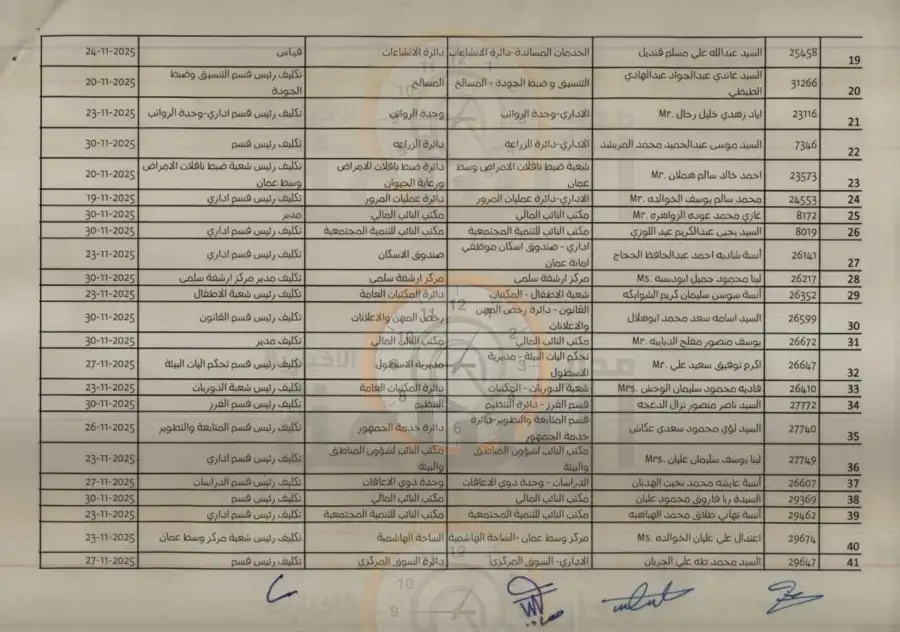 19 25458 السيد عبدالله علي مسلم قنديل الخدمات المساندة-دائرة الانشاءات دائرة الانشاءات قياس 24-11-2025
20 31266 السيد غاندي عبدالجواد عبدالهادي الطيطي التنسيق و ضبط الجودة - المسالخ المسالخ تكليف رئيس قسم التنسيق وضبط الجودة 20-11-2025
21 23116 اياد زهدي خليل رحال .Mr الاداري-وحدة الرواتب وحدة الرواتب تكليف رئيس قسم اداري-وحدة الرواتب 23-11-2025
22 7346 السيد موسى عبدالحميد محمد المريشد الاداري-دائرة الزراعه دائرة الزراعه تكليف رئيس قسم 30-11-2025
23 23573 احمد خالد سالم هملان .Mr شعبة ضبط ناقلات الامراض وسط عمان دائرة ضبط ناقلات الامراض ورعاية الحيوان تكليف رئيس شعبة ضبط ناقلات الامراض وسط عمان 20-11-2025
24 24553 محمد سالم يوسف الخوالده .Mr الاداري-دائرة عمليات المرور دائرة عمليات المرور تكليف رئيس قسم اداري 19-11-2025
25 8172 غازي محمد عوده الزواهره .Mr مكتب النائب المالي مكتب النائب المالي مدير 30-11-2025
26 8019 السيد يحيى عبدالكريم عبد اللوزي مكتب النائب للتنمية المجتمعية مكتب النائب للتنمية المجتمعية تكليف رئيس قسم اداري 30-11-2025
27 26141 آنسة شاديه احمد عبدالحافظ الحجاج اداري - صندوق اسكان موظفي امانة عمان صندوق الاسكان تكليف رئيس قسم اداري 23-11-2025
28 26217 لينا محمود جميل ابودبسه .Ms مركز ارشفة سلمى مركز ارشفة سلمى تكليف مدير مركز ارشفة سلمى 30-11-2025
29 26352 آنسة سوسن سليمان كريم الشوابكه شعبة الاطفال - المكتبات دائرة المكتبات العامة تكليف رئيس شعبة الاطفال 23-11-2025
30 26599 السيد اسامه سعد محمد ابوهلال القانون - دائرة رخص المهن والاعلانات رخص المهن والاعلانات تكليف رئيس قسم القانون 30-11-2025
31 26672 يوسف منصور مفلح الدبايبه .Mr مكتب النائب المالي مكتب النائب المالي تكليف مدير 30-11-2025
32 26647 اكرم توفيق سعيد علي .Mr تحكم اليات البيئة - مديرية الاسطول مديرية الاسطول تكليف رئيس قسم تحكم اليات البيئة 27-11-2025
33 26410 فاديه محمود سليمان الوحش .Mrs شعبة الدوريات - المكتبات دائرة المكتبات العامة تكليف رئيس شعبة الدوريات 23-11-2025
34 27772 السيد ناصر منصور نزال الدعجه قسم الفرز - دائرة التنظيم التنظيم تكليف رئيس قسم الفرز 30-11-2025
35 27740 السيد لؤي محمود سعدي عكاش قسم المتابعة والتطوير-دائرة خدمة الجمهور دائرة خدمة الجمهور تكليف رئيس قسم المتابعة والتطوير 26-11-2025
36 27749 لينا يوسف سليمان عليان .Mrs مكتب النائب لشؤون المناطق والبيئة مكتب النائب لشؤون المناطق والبيئة تكليف رئيس قسم اداري 23-11-2025
37 26607 آنسة عايشه محمد بخيت الهديان الدراسات - وحدة ذوي الاعاقات وحدة ذوي الاعاقات تكليف رئيس قسم الدراسات 27-11-2025
38 29369 السيدة ربا فاروق محمود عليان مكتب النائب المالي مكتب النائب المالي تكليف رئيس قسم 30-11-2025
39 29462 آنسة تهاني طلاق محمد الهباهبه مكتب النائب للتنمية المجتمعية مكتب النائب للتنمية المجتمعية تكليف رئيس قسم اداري 23-11-2025
40 29674 اعتدال علي عليان الخوالده .Ms مركز وسط عمان -الساحة الهاشمية الساحة الهاشمية تكليف رئيس شعبة مركز وسط عمان 23-11-2025
41 29647 السيد محمد طه علي الجريان الاداري- السوق المركزي دائرة السوق المركزي تكليف رئيس قسم 27-11-2025